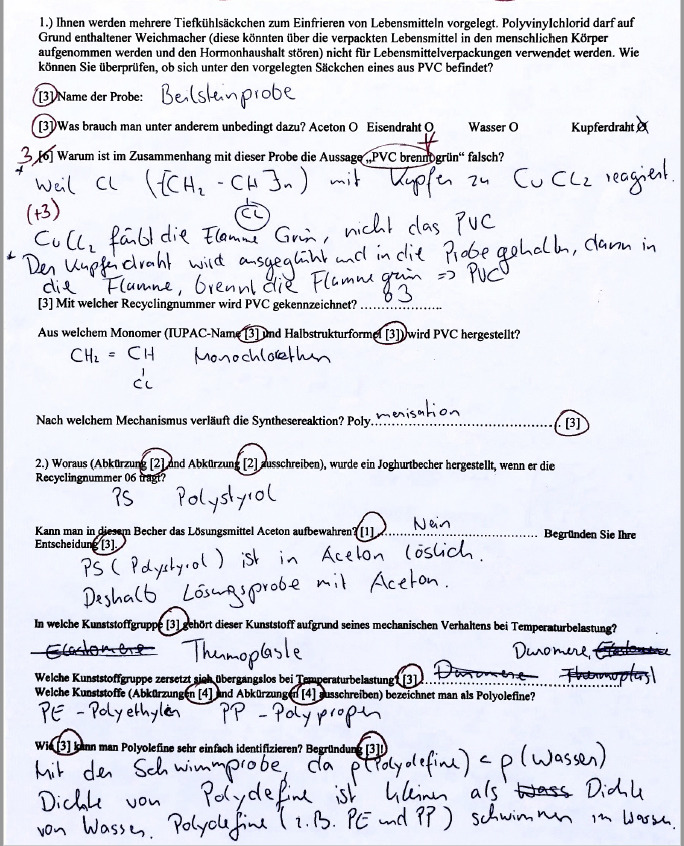 1.) Ihnen werden mehrere Tiefkühlsäckchen zum Einfrieren von Lebensmitteln vorgelegt. Polyvinylchlorid darf auf
Grund enthaltener Weichmacher (diese könnten über die verpackten Lebensmittel in den menschlichen Körper
aufgenommen werden und den Hormonhaushalt stören) nicht für Lebensmittelverpackungen verwendet werden. Wie
können Sie überprüfen, ob sich unter den vorgelegten Säckchen eines aus PVC befindet?
[3] Name der Probe: Beilsteinprobe
[3] Was brauch man unter anderem unbedingt dazu? Aceton O Eisendraht O Wasser O Kupferdraht O
3 [6] Warum ist im Zusammenhang mit dieser Probe die Aussage „PVC brennt grün“ falsch?
* Weil Cl (-[CH2 - CH]n) mit Kupfer zu CuCl2 reagiert.
Cl
(+3)
CuCl2 färbt die Flamme Grün, nicht das PVC
* Der Kupferdraht wird ausgeglüht und in die Probe gehalten, dann in
die Flamme, brennt die Flamme grün => PVC
[3] Mit welcher Recyclingnummer wird PVC gekennzeichnet? 03
Aus welchem Monomer (IUPAC-Name [3] und Halbstrukturformel [3]) wird PVC hergestellt?
CH2 = CH Monochlorethen
Cl
Nach welchem Mechanismus verläuft die Synthesereaktion? Poly merisation [3]
2.) Woraus (Abkürzung [2] und Abkürzung [2] ausschreiben), wurde ein Joghurtbecher hergestellt, wenn er die
Recyclingnummer 06 trägt?
PS Polystyrol
Kann man in diesem Becher das Lösungsmittel Aceton aufbewahren? [1] Nein Begründen Sie Ihre
Entscheidung [3].
PS (Polystyrol) ist in Aceton löslich.
Deshalb Lösungsprobe mit Aceton.
In welche Kunststoffgruppe [3] gehört dieser Kunststoff aufgrund seines mechanischen Verhaltens bei Temperaturbelastung?
Elastomere Thermoplaste Duromere, Elastomere
Welche Kunststoffgruppe zersetzt sich übergangslos bei Temperaturbelastung? [3] Duromere Thermoplast
Welche Kunststoffe (Abkürzungen [4] und Abkürzungen [4] ausschreiben) bezeichnet man als Polyolefine?
PE - Polyethylen PP - Polypropen
Wie [3] kann man Polyolefine sehr einfach identifizieren? Begründung [3]!
Mit der Schwimmprobe, da ρ(Polyolefine) < ρ(Wasser)
Dichte von Polyolefine ist kleiner als Wass Dichte
von Wasser. Polyolefine (z.B. PE und PP) schwimmen im Wasser.